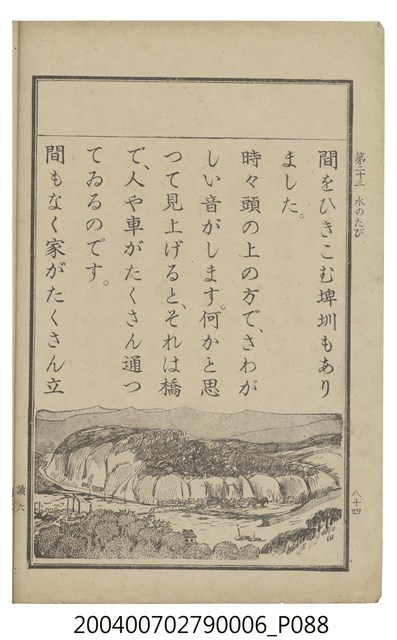 第二十三 水のたび
間をひきこむ埤圳もあり
ました。
時々頭の上の方で、さわが
しい音がします。何かと思
つて見上げると、それは橋
で、人や車がたくさん通つ
てゐるのです。
間もなく家がたくさん立
八十四
讀六
200400702790006_P088